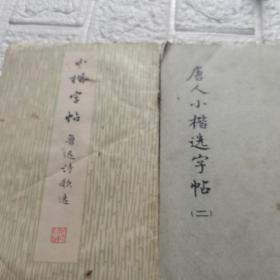 小楷字帖
鲁迅诗歌选
唐人小楷选字帖
(二)